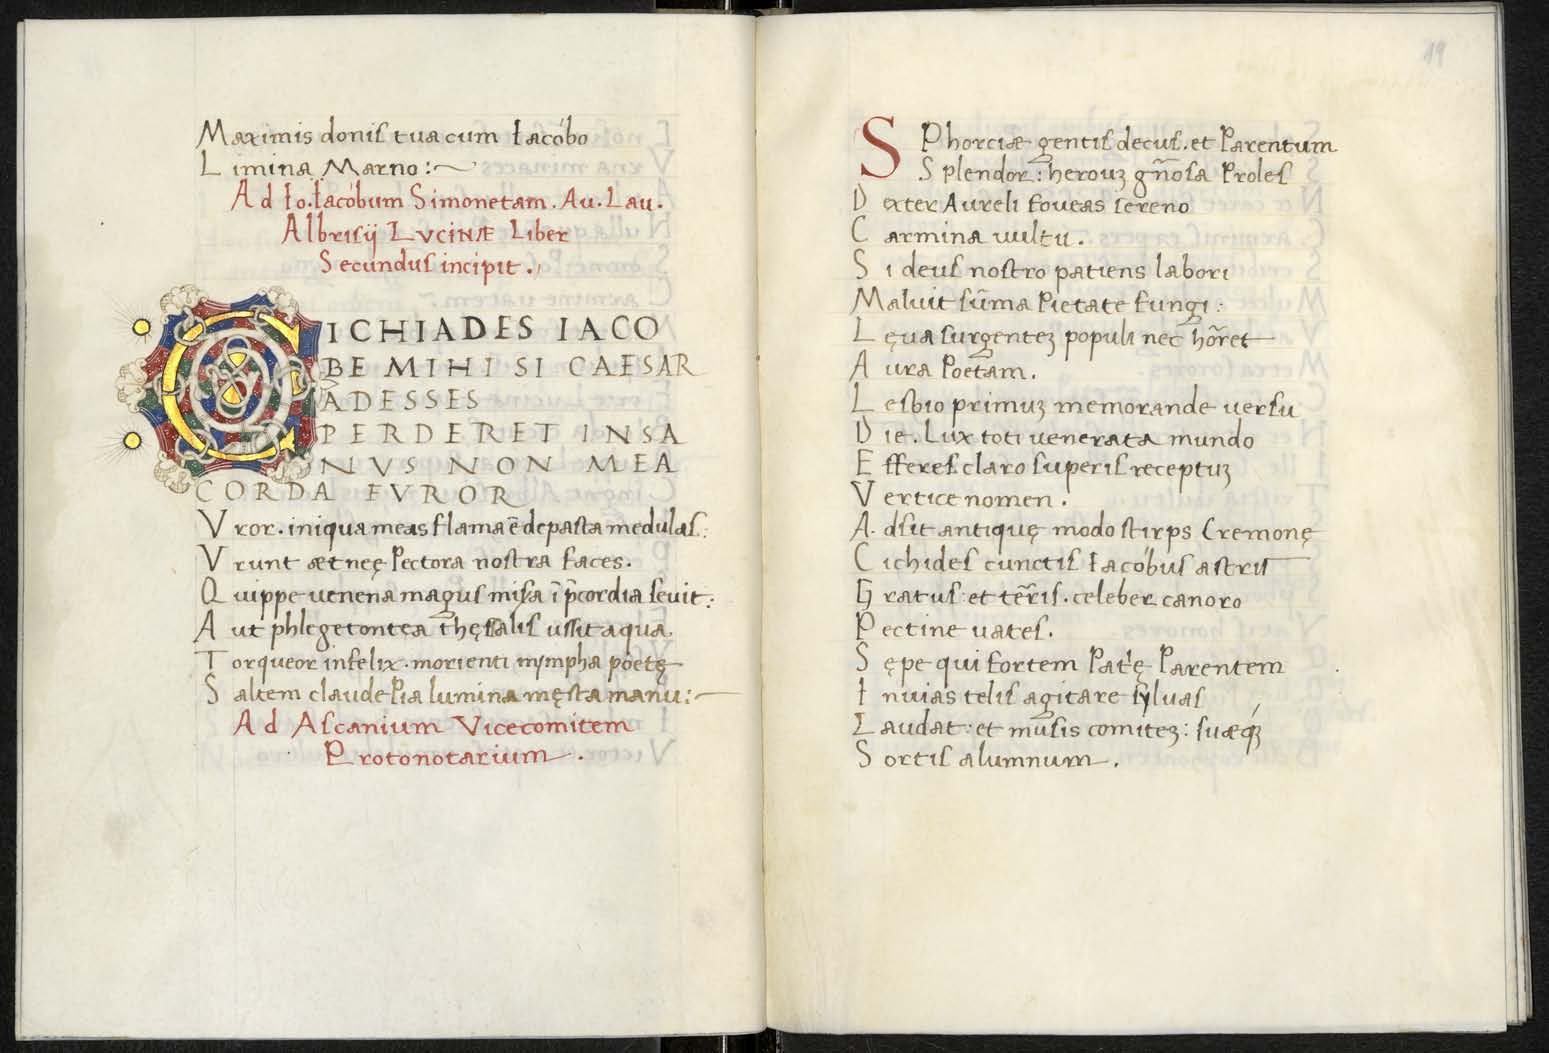 Maximis donis tua cum Iacóbo
Limina Marno:~
Ad Io. Iacóbum Simonetam. Au. Lau.
Albrisij LVCINÆ Liber
Secundus incipit.
CICHIADES IACO
BE MIHI SI CAESAR
ADESSES
PERDERET INSA
NVS NON MEA
CORDA FVROR
Vror. iniqua meas flama ē depasta medulas:
Vrunt ætneę Pectora nostra faces.
Quippe venena magus misa ī p̄cordia sevit:
Aut phlegetontea thęssalis ussit aqua.
Torqueor infelix. morienti nympha poetę
Saltem claude Pia lumina męsta manu:~
Ad Ascanium Vicecomitem
Protonotarium.
19
SPhorciæ gentis decus. et Parentum
Splendor: herouꝫ gn̄osa Proles
Dexter Aureli foveas sereno
Carmina vultu.
Si deus nostro patiens labori
Maluit sūma Pietate fungi:
Lęva surgenteꝫ populi nec hōret
Aura Poetam.
Lesbio primuꝫ memorande versu
Die. Lux toti venerata mundo
Efferes claro superis receptuꝫ
Vertice nomen.
Adsit antiquę modo stirps Cremonę
Cichides cunctis Iacóbus astris
Gratus: et tēris. celeber canoro
Pectine vates.
Sępe qui fortem Pat̄ę Parentem
Invias telis agitare sylvas
Laudat: et musis comiteꝫ: suæq́ꝫ
Sortis alumnum.